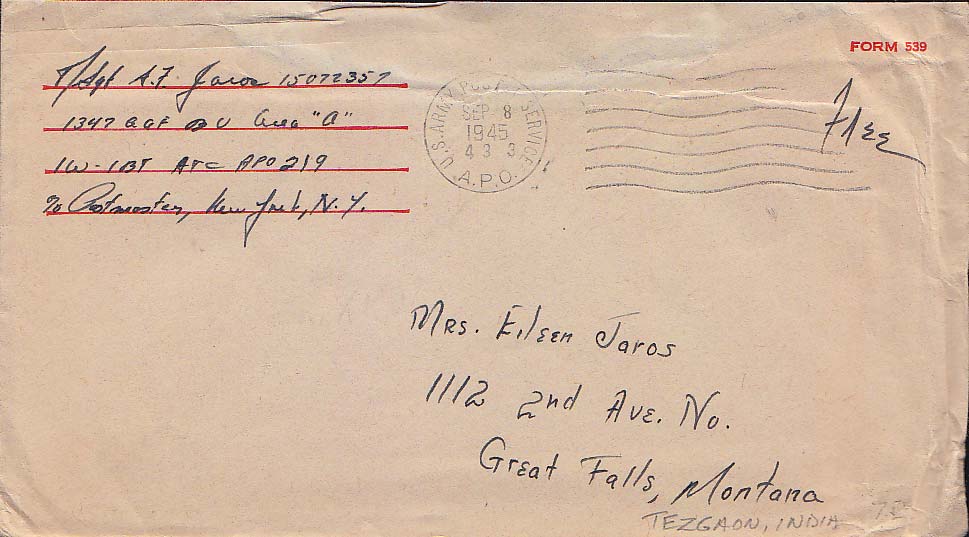 FORM 539
T/Sgt A.F. Jaros 15072357
1347 AAF BU Area "A"
IW-IBT ATC APO 219
℅ Postmaster, New York, N.Y.
U.S. ARMY POSTAL SERVICE
SEP 8
1945
4 3 3
A.P.O.
Free
Mrs. Eileen Jaros
1112 2nd Ave. No.
Great Falls, Montana
TEZGAON, INDIA